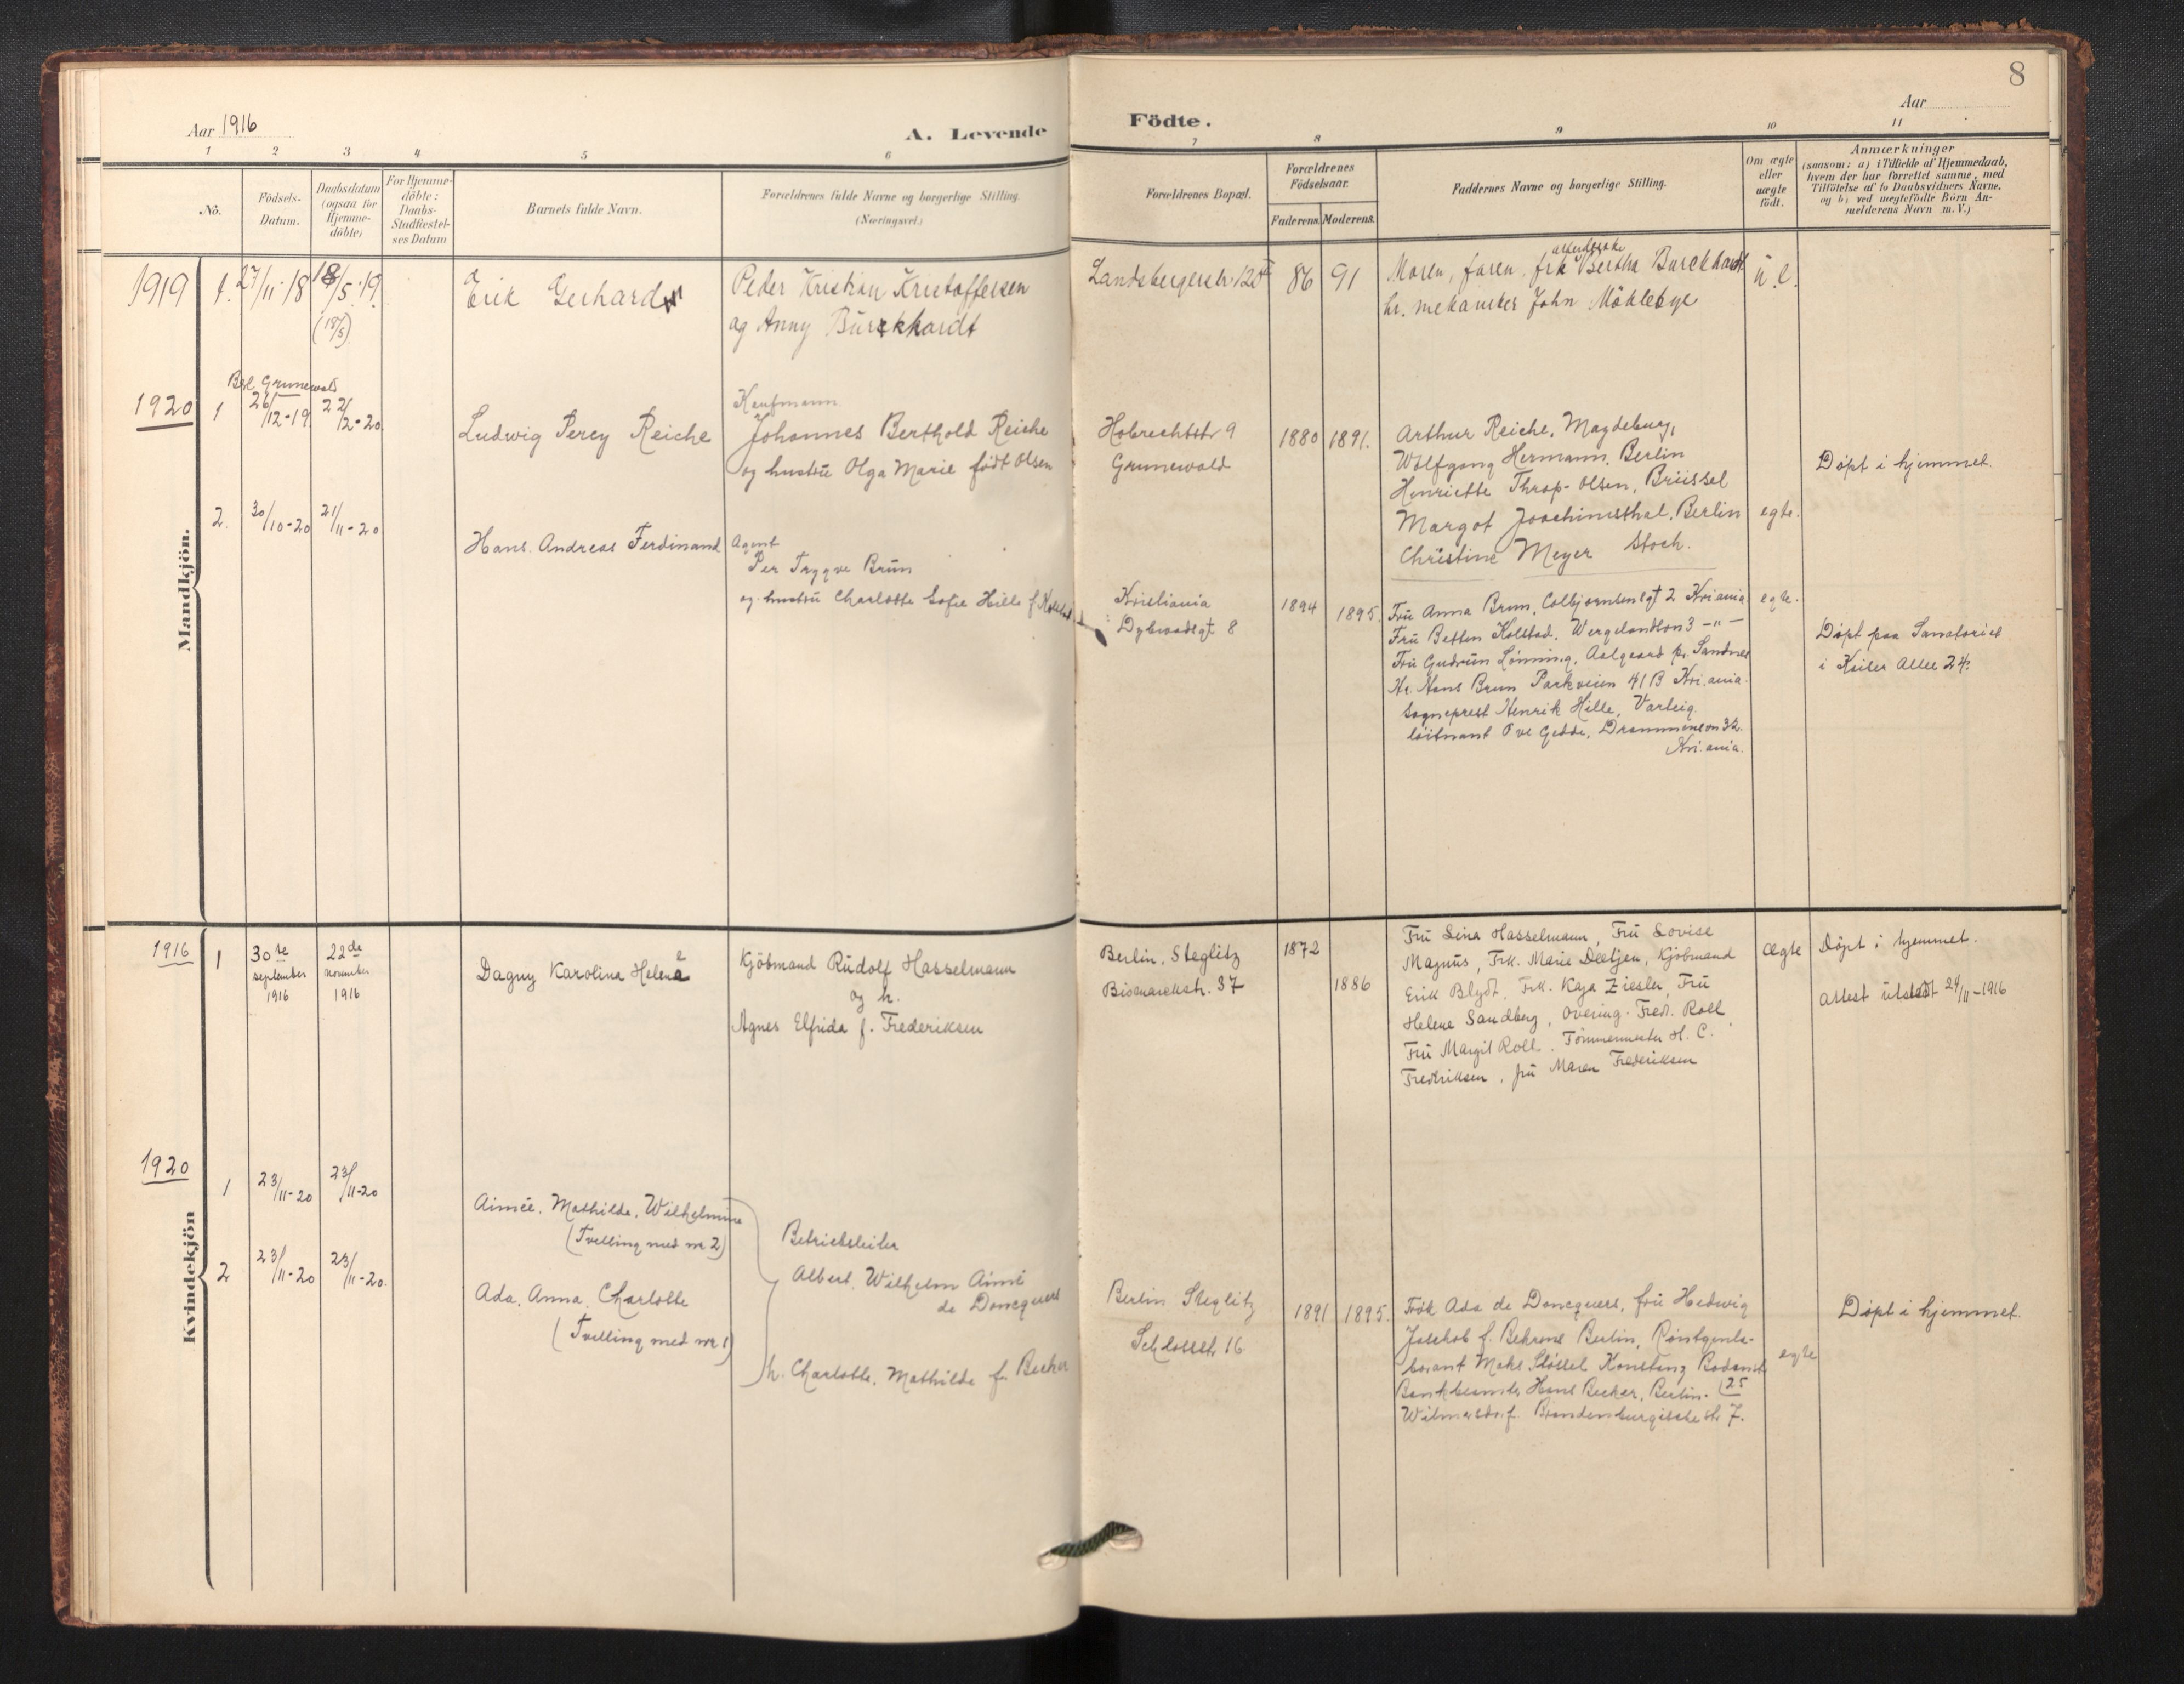 8
Aar 1916
A. Levende
Födte.
Aar
1 2 3 4 5 6 7 8 9 10 11
No.
Födsels-
Datum.
Daabsdatum
(ogsaa for
Hjemme-
döbte)
For Hjemme-
döbte:
Daabs-
Stadfæstel-
ses Datum
Barnets fulde Navn.
Forældrenes fulde Navne og borgerlige Stilling.
(Næringsvei.)
Forældrenes Bopæl.
Forældrenes
Födselsaar.
Faderens. Moderens.
Faddernes Navne og borgerlige Stilling.
Om ægte
eller
uægte
födt.
Anmærkninger
(saasom: a) i Tilfælde af Hjemmedaab,
hvem der har forrettet samme, med
Tilföielse af to Daabsvidners Navne,
og b) ved uægtefödte Börn An-
melderens Navn m.V.)
Mandkjön.
1919 1. 27/11.18 18/5.19
(18/5)
Erik Gerhard
Peder Kristian Kristoffersen
og Anny Burckhardt
Landsbergerstr. 120
86 91
Moren, faren, frk Bertha Burckhardt
hr. mekaniker John Möklebye
u.e.
Brl. Grunewald
1920 1 26/12-19 22/2-20
Ludwig Percy Reiche
Kaufmann
Johannes Berthold Reiche
og hustru Olga Marie født Olsen
Hobrechtstr 9
Grunewald
1880 1891.
Arthur Reiche, Magdeburg,
Wolfgang Hermann, Berlin
Henriette Throp-Olsen, Brüssel
Margot Joachimsthal, Berlin
Christine Meyer Stoch.
egte.
Døpt i hjemmet.
2. 30/10-20 21/11-20
Hans Andreas Ferdinand
Agent
Per Trygve Brun
og hustru Charlotte Sofie Hille f. Kolstad
Kristiania
Dybwadsgt 8
1894 1895.
Fru Anna Brun, Colbjørnsensgt 2 Kri.ania
Fru Betten Kolstad, Wergelandsvn 3 -"-
Fru Gudrun Lønning, Aalgaard pr. Sandnes
Hr. Hans Brun Parkveien 41B Kri.ania.
Sogneprest Henrik Hille, Varteig.
løitnant Ove Gedde, Drammensvn 32.
Kri.ania.
egte.
Døpt paa Sanatoriet
i Kaiser Allee 24.
Kvindekjön
1916 1 30te
september
1916
22de
november
1916
Dagny Karolina Helena
Kjöbmand Rudolf Hasselmann
og h.
Agnes Elfrida f. Frederiksen
Berlin, Steglitz
Bismarckstr. 37
1872
1886
Fru Lina Hasselmann, Fru Lovise
Magnus, Frk. Marie Deetjen, Kjöbmand
Erik Blydt, Frk. Kaja Ziesler, Fru
Helene Sandberg, Overing. Fredr. Roll
Fru Margit Roll, Tömmermester H. C.
Fredriksen, fru Maren Frederiksen
Ægte
Døpt i hjemmet.
Attest utstedt 24/11-1916
1920
1 23/11-20 23/11-20
Aimée, Mathilde, Wilhelmine
(Tvilling med nr 2)
2 23/11-20 23/11-20.
Ada, Anna, Charlotte
(Tvilling med nr 1)
Betriebsleiter
Albert, Wilhelm Aimé
de Doncquers
h. Charlotte, Mathilde f. Becker
Berlin Steglitz
Schlosstr 16
1891 1895.
Frök Ada de Doncquers, fru Hedwig
f. Behrens Berlin, Röntgenla-
borant Maks Konstanz Bodensee
Bankbeamter Hans Becker, Berlin.
Wilmersdorf. Brandenburgische str 7.
25
egte
Døpt i hjemmet.